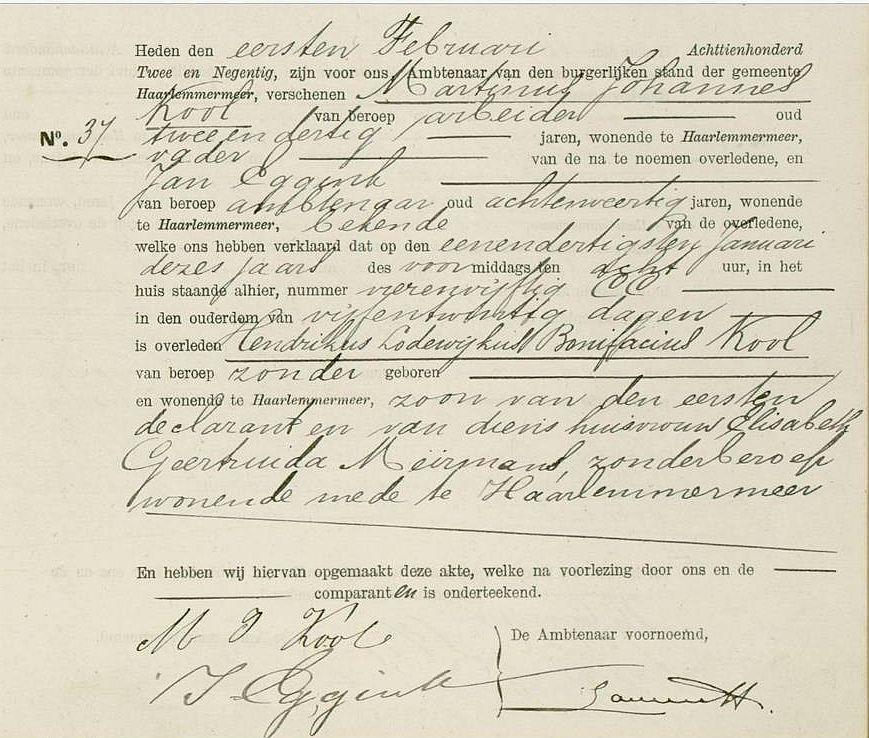 Heden den eersten Februari Achttienhonderd
Twee en Negentig, zijn voor ons Ambtenaar van den burgerlijken stand der gemeente
Haarlemmermeer, verschenen Martinus Johannes
Kool van beroep arbeider oud
No. 37 twee en dertig jaren, wonende te Haarlemmermeer,
vader van de na te noemen overledene, en
Jan Eggink
van beroep ambtenaar oud achtenveertig jaren, wonende
te Haarlemmermeer, bekende van de overledene,
welke ons hebben verklaard dat op den eenendertigsten Januari
dezes jaars des voormiddags ten acht uur, in het
huis staande alhier, nummer vierenvijftig CC
in den ouderdom van vijfentwintig dagen
is overleden Hendrikus Lodewijkus Bonifacius Kool
van beroep zonder geboren
en wonende te Haarlemmermeer, zoon van den eersten
declarant en van diens huisvrouw Elisabeth
Geertruida Meirmans, zonder beroep
wonende mede te Haarlemmermeer
En hebben wij hiervan opgemaakt deze akte, welke na voorlezing door ons en de
comparanten is onderteekend.
M J Kool De Ambtenaar voornoemd,
J Eggink